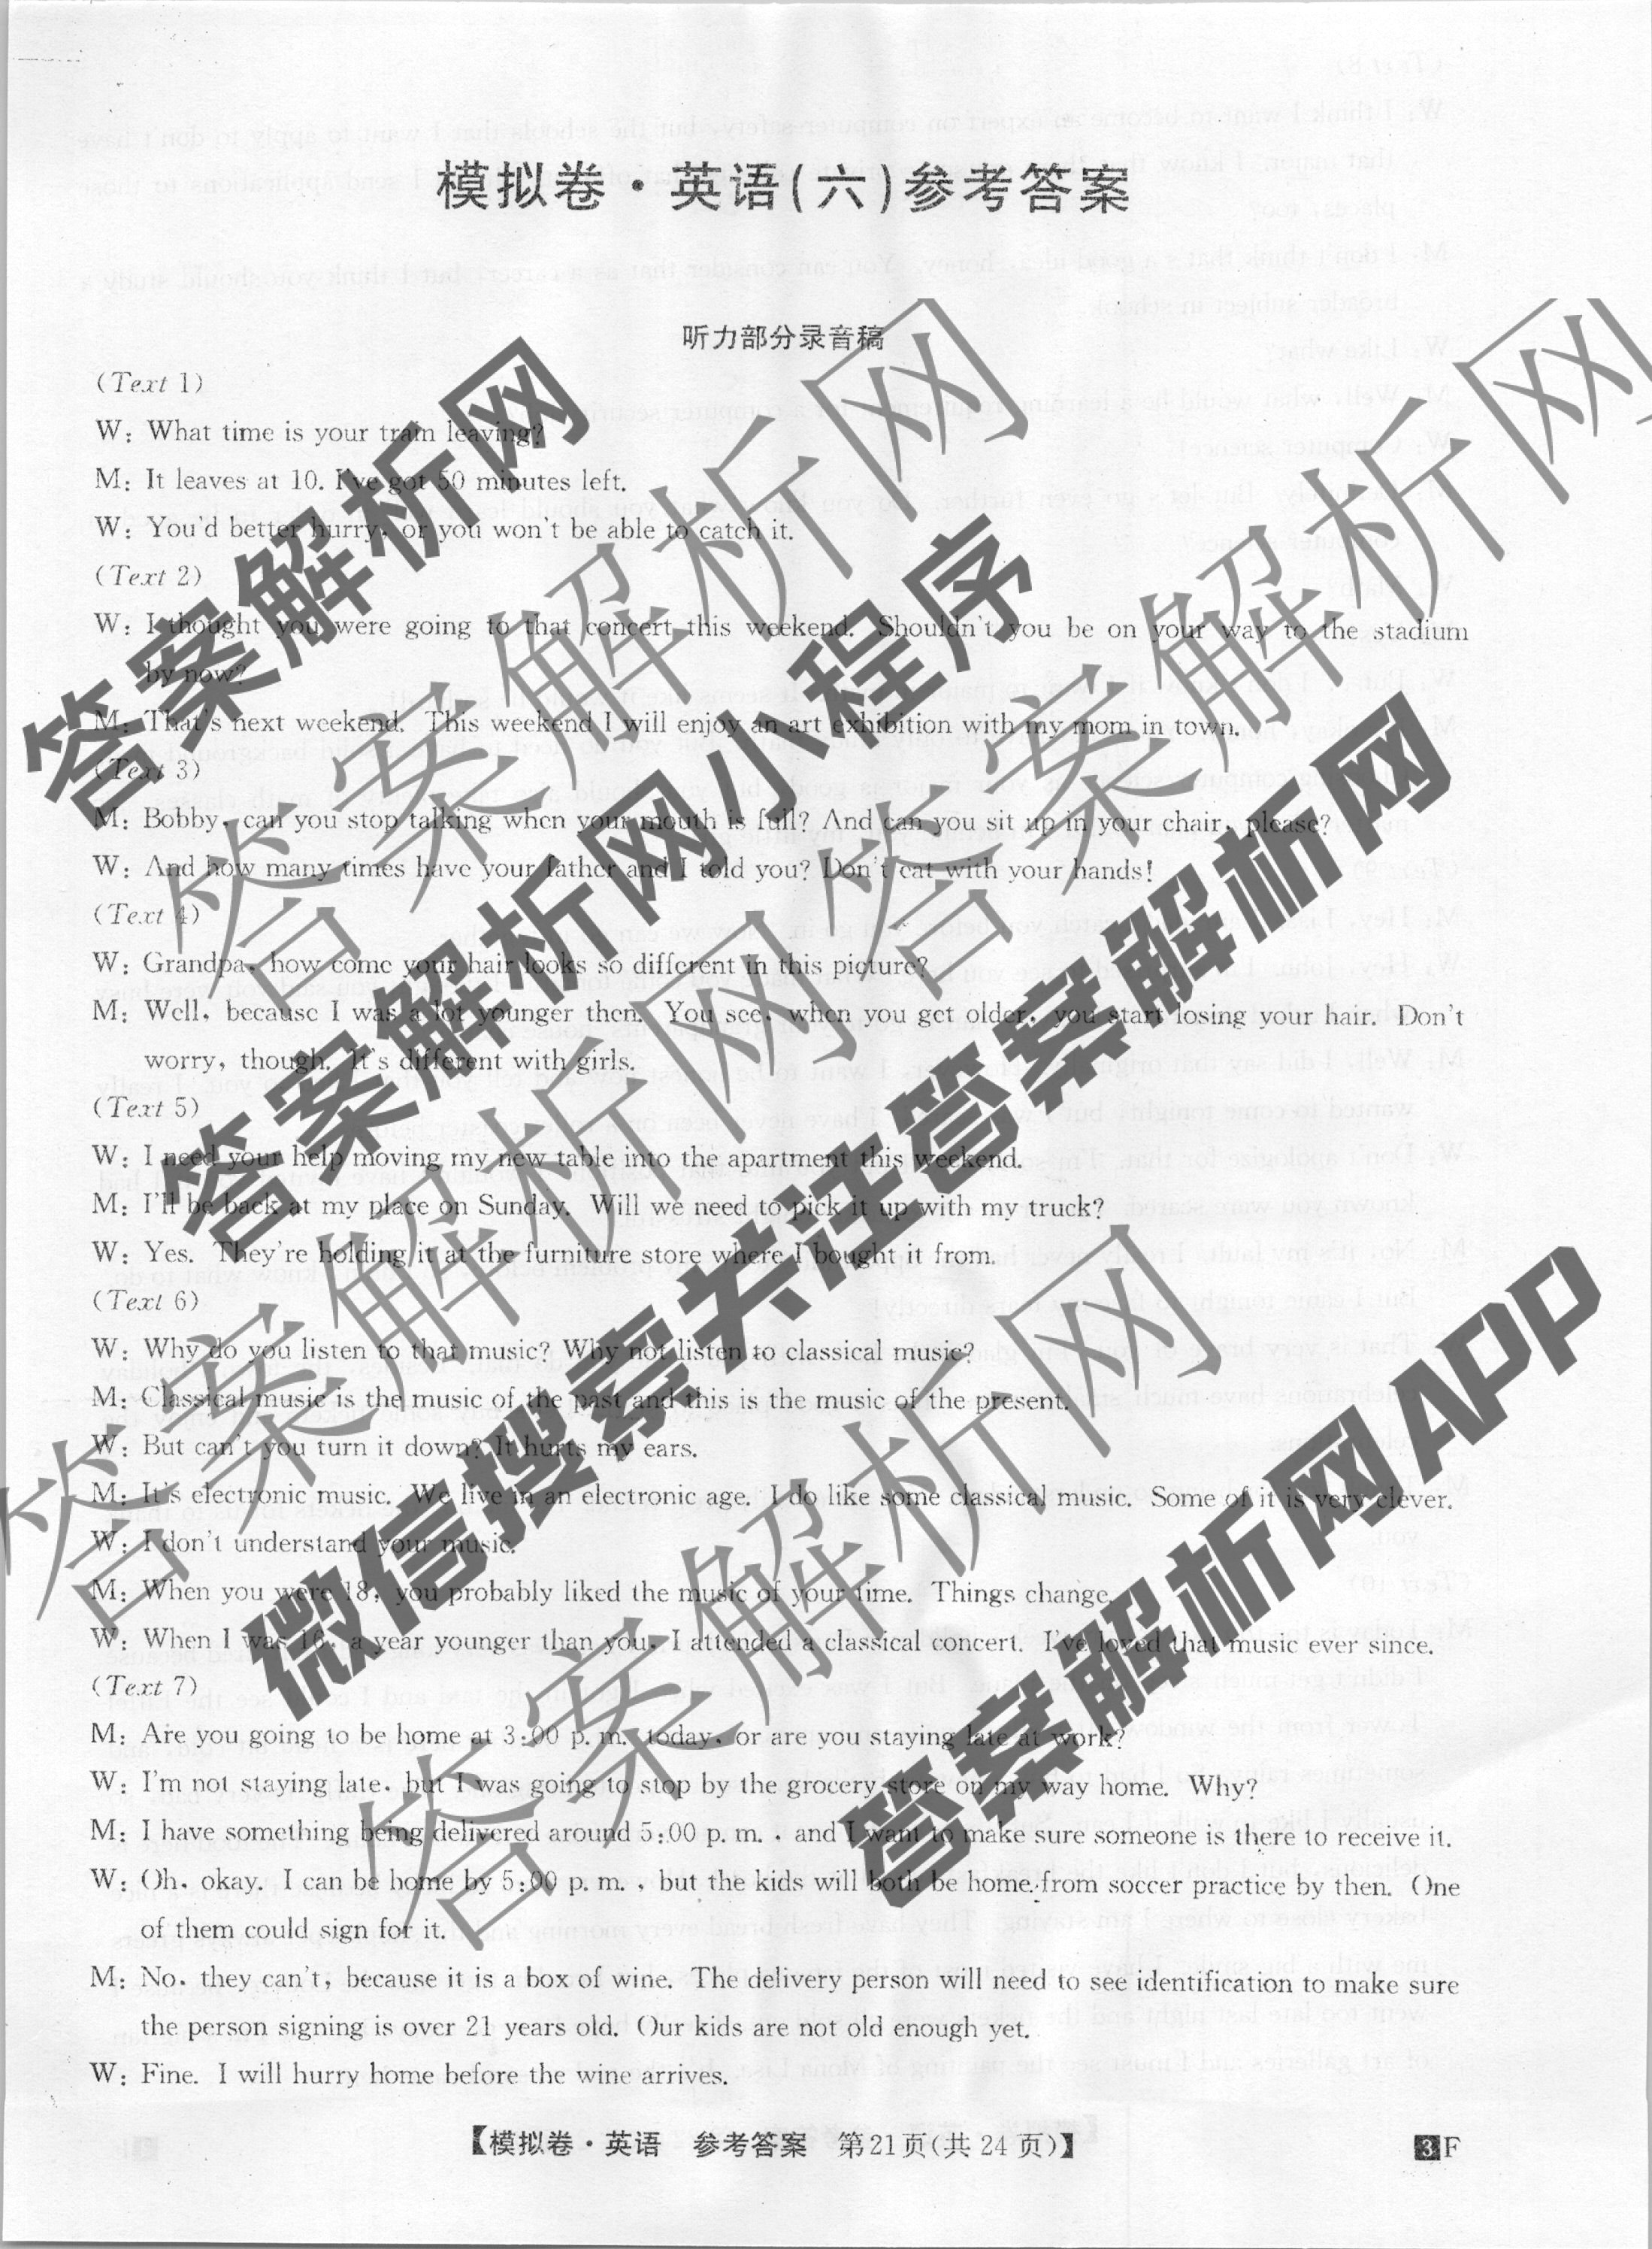 模拟卷·英语(六)参考答案
听力部分录音稿
(Text 1)
W: What time is your train leaving?
M: It leaves at 10. I've got 50 minutes left.
W: You'd better hurry, or you won't be able to catch it.
(Text 2)
W: I thought you were going to that concert this weekend. Shouldn't you be on your way to the stadium
by now?
M: That's next weekend. This weekend I will enjoy an art exhibition with my mom in town.
(Text 3)
M: Bobby, can you stop talking when your mouth is full? And can you sit up in your chair, please?
W: And how many times have your father and I told you? Don't eat with your hands!
(Text 4)
W: Grandpa, how come your hair looks so different in this picture?
M: Well, because I was a lot younger then. You see, when you get older, you start losing your hair. Don't
worry, though. It's different with girls.
(Text 5)
W: I need your help moving my new table into the apartment this weekend.
M: I'll be back at my place on Sunday. Will we need to pick it up with my truck?
W: Yes. They're holding it at the furniture store where I bought it from.
(Text 6)
W: Why do you listen to that music? Why not listen to classical music?
M: Classical music is the music of the past and this is the music of the present.
W: But can't you turn it down? It hurts my ears.
M: It's electronic music. We live in an electronic age. I do like some classical music. Some of it is very clever.
W: I don't understand your music.
M: When you were 18, you probably liked the music of your time. Things change.
W: When I was 16, a year younger than you, I attended a classical concert. I've loved that music ever since.
(Text 7)
M: Are you going to be home at 3:00 p. m. today, or are you staying late at work?
W: I'm not staying late, but I was going to stop by the grocery store on my way home. Why?
M: I have something being delivered around 5:00 p. m. , and I want to make sure someone is there to receive it.
W: Oh, okay. I can be home by 5:00 p. m. , but the kids will both be home from soccer practice by then. One
of them could sign for it.
M: No, they can't, because it is a box of wine. The delivery person will need to see identification to make sure
the person signing is over 21 years old. Our kids are not old enough yet.
W: Fine. I will hurry home before the wine arrives.
【模拟卷·英语 参考答案 第21页(共24页)】
3F
答案解析网
答案解析网小程序
微信搜索关注答案解析网
答案解析网APP
答案解析网
答案解析网
答案解析网
答案解析网